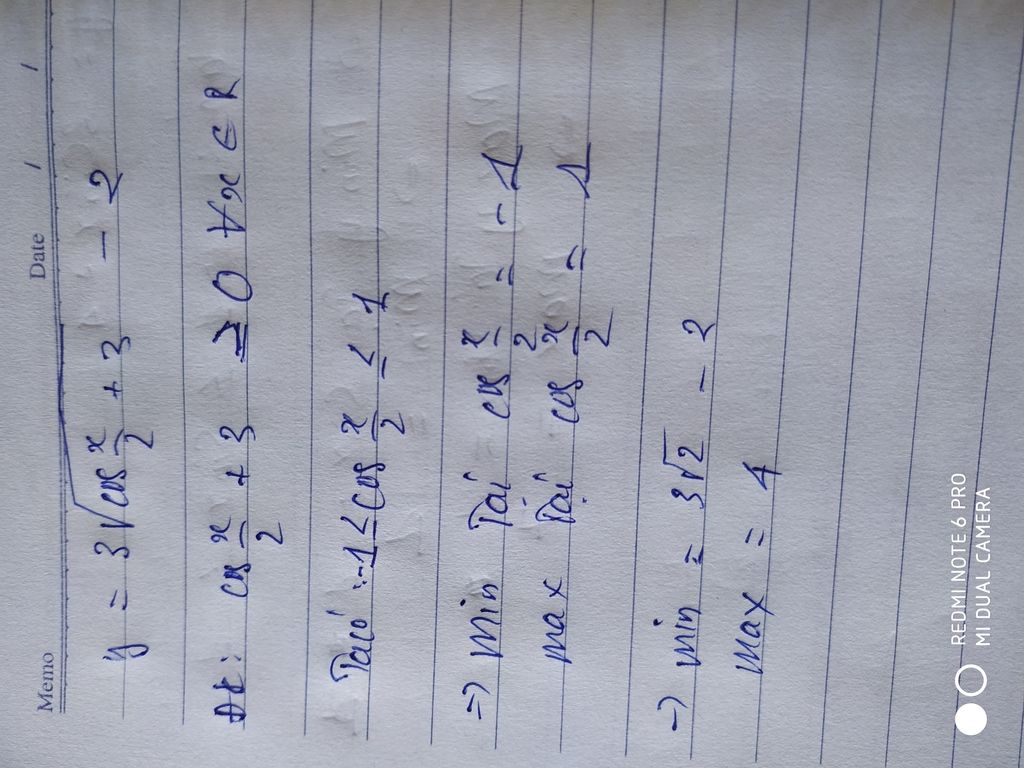 Memo Date / /
y = 3√(cos x/2 + 3) - 2
Đk: cos x/2 + 3 ≥ 0 ∀x ∈ R
Ta có: -1 ≤ cos x/2 ≤ 1
=> min Tại cos x/2 = -1
max Tại cos x/2 = 1
=> min = 3√2 - 2
max = 4
REDMI NOTE 6 PRO
MI DUAL CAMERA